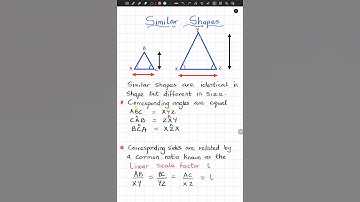 Similar Shapes
B
A
C
X
Z
Similar shapes are identical in
shape but different in size.
* Corresponding angles are equal
ABC = XYZ
CAB = ZXY
BCA = XZX
* Corresponding sides are related by
a common ratio known as the
linear scale factor l
AB/XY = BC/YZ = AC/XZ = l